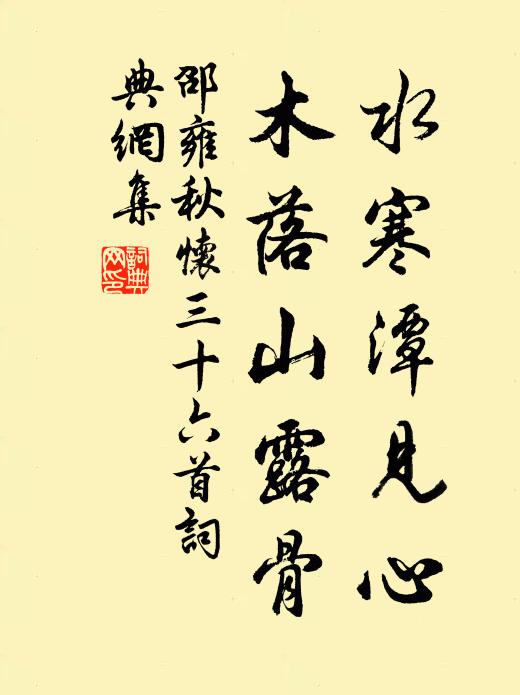 水寒潭見心
木落山露骨
邵雍秋懷三十六首詞
典網集
詞典網印